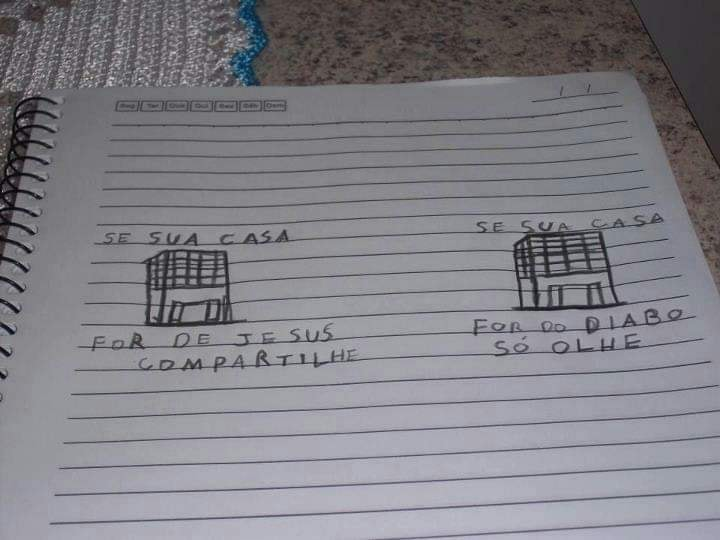 Seg Ter Qua Qui Sex Sáb Dom
SE SUA CASA
FOR DE JESUS
COMPARTILHE
SE SUA CASA
FOR DO DIABO
SÓ OLHE